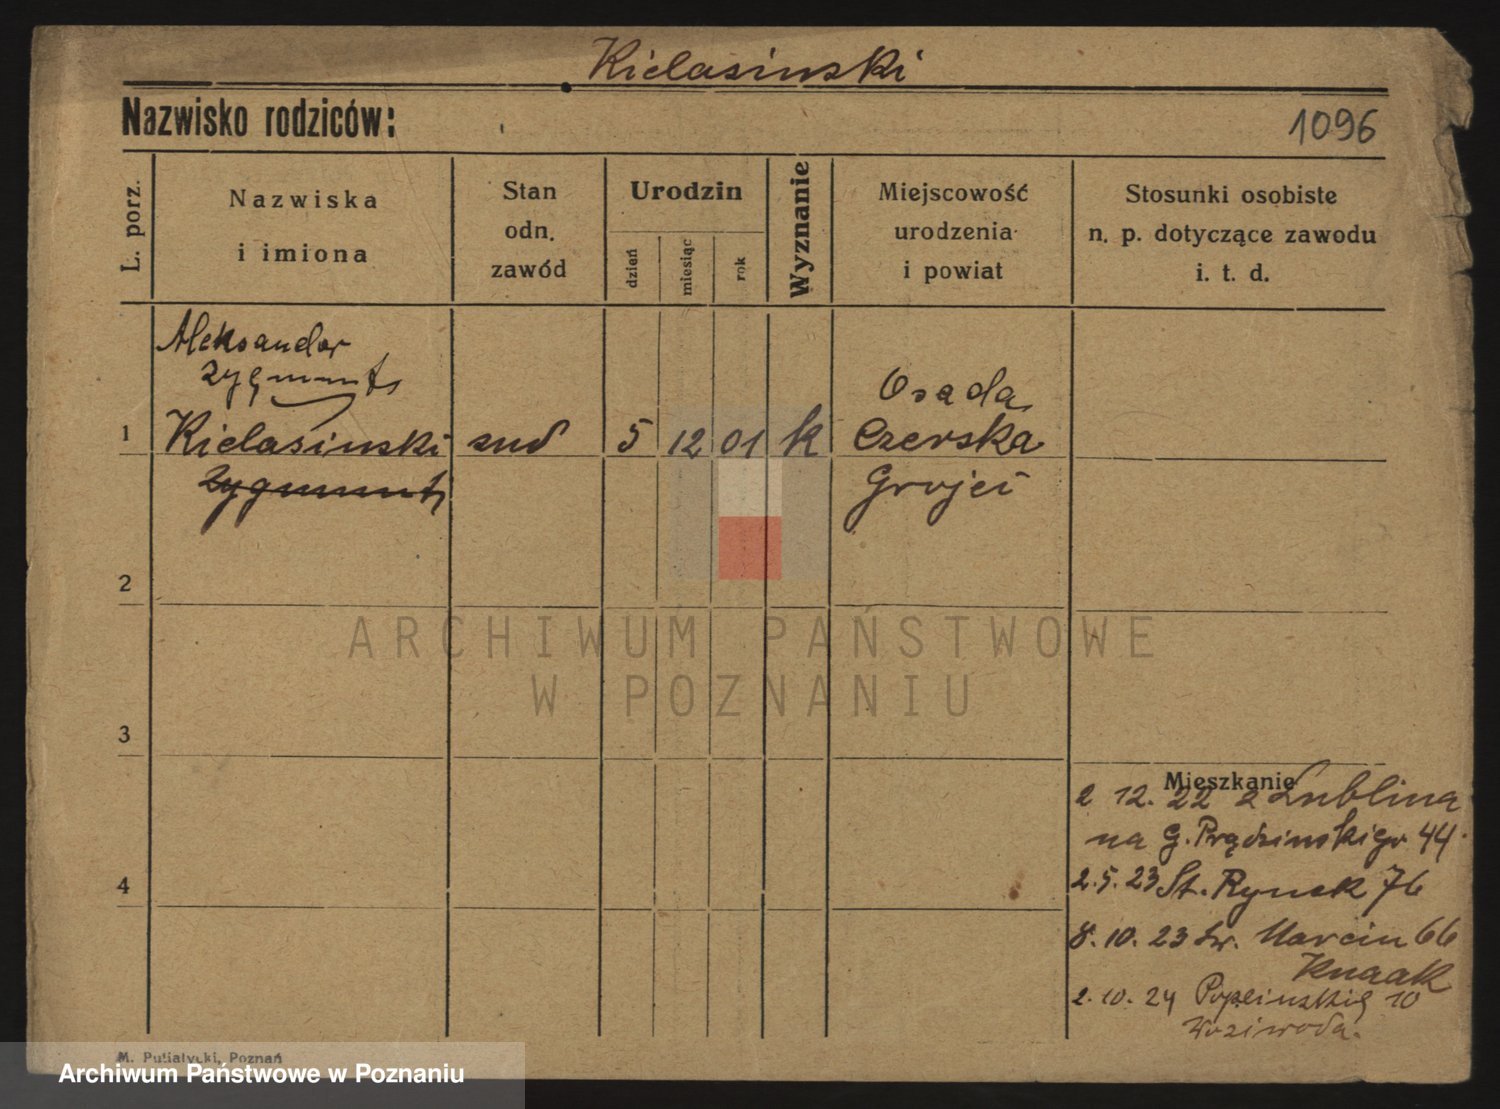 Kielasinski
Nazwisko rodziców:
1096
L. porz.
Nazwiska
i imiona
Stan
odn.
zawód
Urodzin
dzień
miesiąc
rok
Wyznanie
Miejscowość
urodzenia
i powiat
Stosunki osobiste
n. p. dotyczące zawodu
i. t. d.
Aleksander
Zygmunt
1 Kielasinski stud 5 12 01 k
Zygmunt
Osada
Czerska
Grojec
2
3
4
Mieszkanie
2 12. 22 z Lublina
na G. Prądzinskiego 44
2. 5. 23 St. Rynek 76
8. 10. 23 Św. Marcin 66
Knaak
2. 10. 24 10
Woziwoda.
M. Putiatycki, Poznań
ARCHIWUM PAŃSTWOWE
W POZNANIU
Archiwum Państwowe w Poznaniu